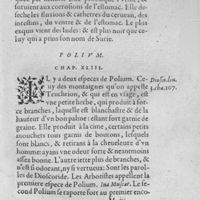 & aux forsions de l'estomac. Il des-
seche les fluxions & catherres du cerueau, des
intestins, du ventre & de l'estomac. Le plus
exquis vient des Indes: & est plus noir que ce-
luy qui a prins son nom de Surie.
POLIVM.
CHAP. XLIII.
IL y a deux especes de Polium. Ce-
luy des montaignes qu'on appelle
Teuthrion, & qui est en vsage, est
vne petite herbe, qui produit a for-
ce branches, laquelle est blanchastre & de la
hauteur d'vn bon palme: estant fort garnie de
graine. Au bout de ses branches, elle produit
des petits boutons, faits en forme de petites
mouschettes de boutons, lesquels
sont blancs, & retirans à la cheuelure d'vn
homme chenu: ayant odeur forte & neantmoins
assez bonne. L'autre iette plus de branches, & n'est
si odorant, ny si vertueux: Sont les paro-
les de Dioscoride. Les Arboristes appellent la
premiere espece de Polium. Iua Muscat. Le se-
cond Polium se raporte fort au premier enco-
Diosco. lin.
3. cha. 107.